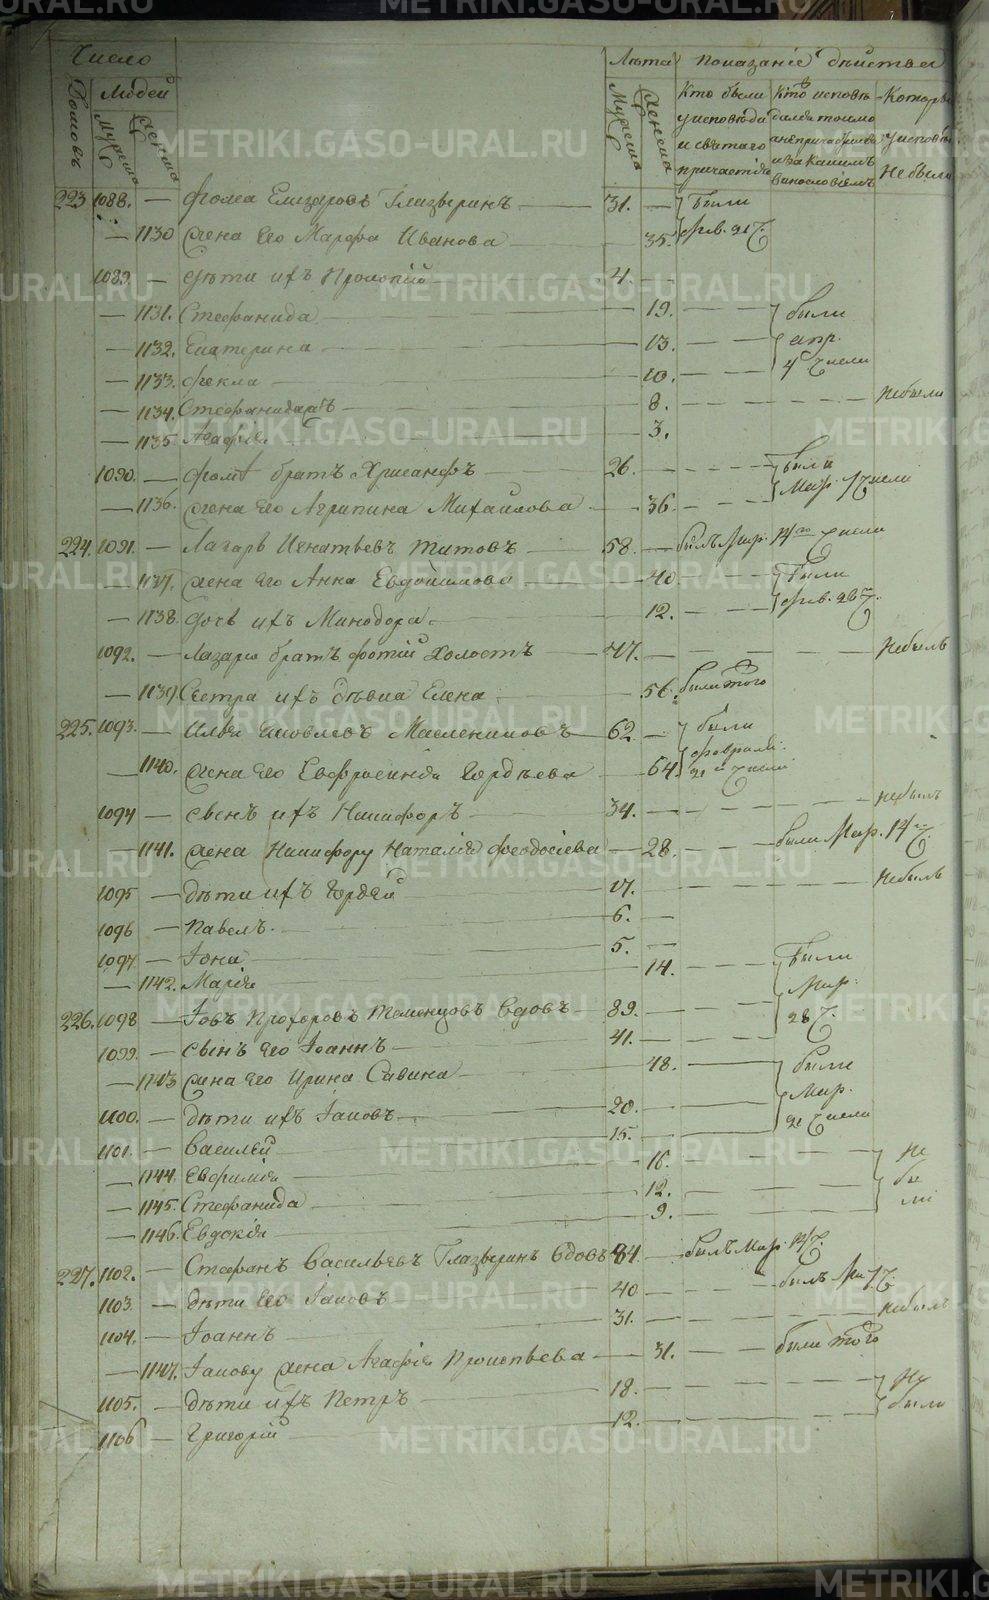 Число
Людей
Домовъ
Мужеска
Женска
Лѣта
Мужеска
Женска
Показаніе дѣйства
Кто были у исповѣди и святаго причастія
Кто исповѣдался токмо а не причастился и за какимъ винословіемъ
Которые у исповѣди не были
223. 1088. — Фома Елизаровъ Глазыринъ — 31. — были
— 1130 жена Его Марфа Иванова — 35. фев. 21 ч.
1089. — дѣти ихъ Прокопій — 4. —
— 1131. Стефанида — 19. были
— 1132. Екатерина — 13. апр.
— 1133. Фекла — 10. 4 числа
— 1134. Стефанида — 8. не были
— 1135 Агафія — 3.
1090. — Фомы братъ Хрисанфъ — 26. были
— 1136. жена Его Агрипина Михаилова — 36. Мар. 1 числа
224. 1091. — Лазарь Игнатьевъ Титовъ — 58. — былъ Мар. 14го числа
— 1137. жена Его Анна Евдокимова — 40. были
— 1138. дочь ихъ Минодора — 12. фев. 26 ч.
1092. — Лазаря братъ Фотій холостъ — 47. не былъ
— 1139. Сестра ихъ дѣвка Елена — 56. были того
225. 1093. — Илья Яковлевъ Маслениковъ — 62. — были
— 1140. жена Его Евфросинія Гордѣева — 64. февраля 21 числа
1094 — сынъ ихъ Никифоръ — 34. — не былъ
— 1141. жена Никифору Наталія Феодосіева — 28. были Мар. 14 ч.
1095 — дѣти ихъ Гордей — 17. не былъ
1096 — Павелъ — 6. —
1097 — Іона — 5. —
— 1142. Марія — 14. были
226. 1098 — Іовъ Прохоровъ Теменцовъ вдовъ — 89. Мар. 28 ч.
1099. — сынъ Его Іоаннъ — 41. —
— 1143 жена Его Ирина Савина — 48. были
1100. — дѣти ихъ Іаковъ — 20. Мар.
1101. — Василей — 15. 21 числа
— 1144. Евфимія — 16. не
— 1145. Стефанида — 12. бы
— 1146. Евдокія — 9. ли
227. 1102. — Стефанъ Васильевъ Глазыринъ вдовъ 84. — былъ Мар. 14 ч.
1103. — дѣти Его Іаковъ — 40 былъ Ма 1 ч.
1104. — Іоаннъ — 31. не былъ
— 1147. Іакову жена Агафія Прокопьева — 31. были того
1105. — дѣти ихъ Петръ — 18. не
1106 — Григорій — 12. были
METRIKI.GASO-URAL.RU